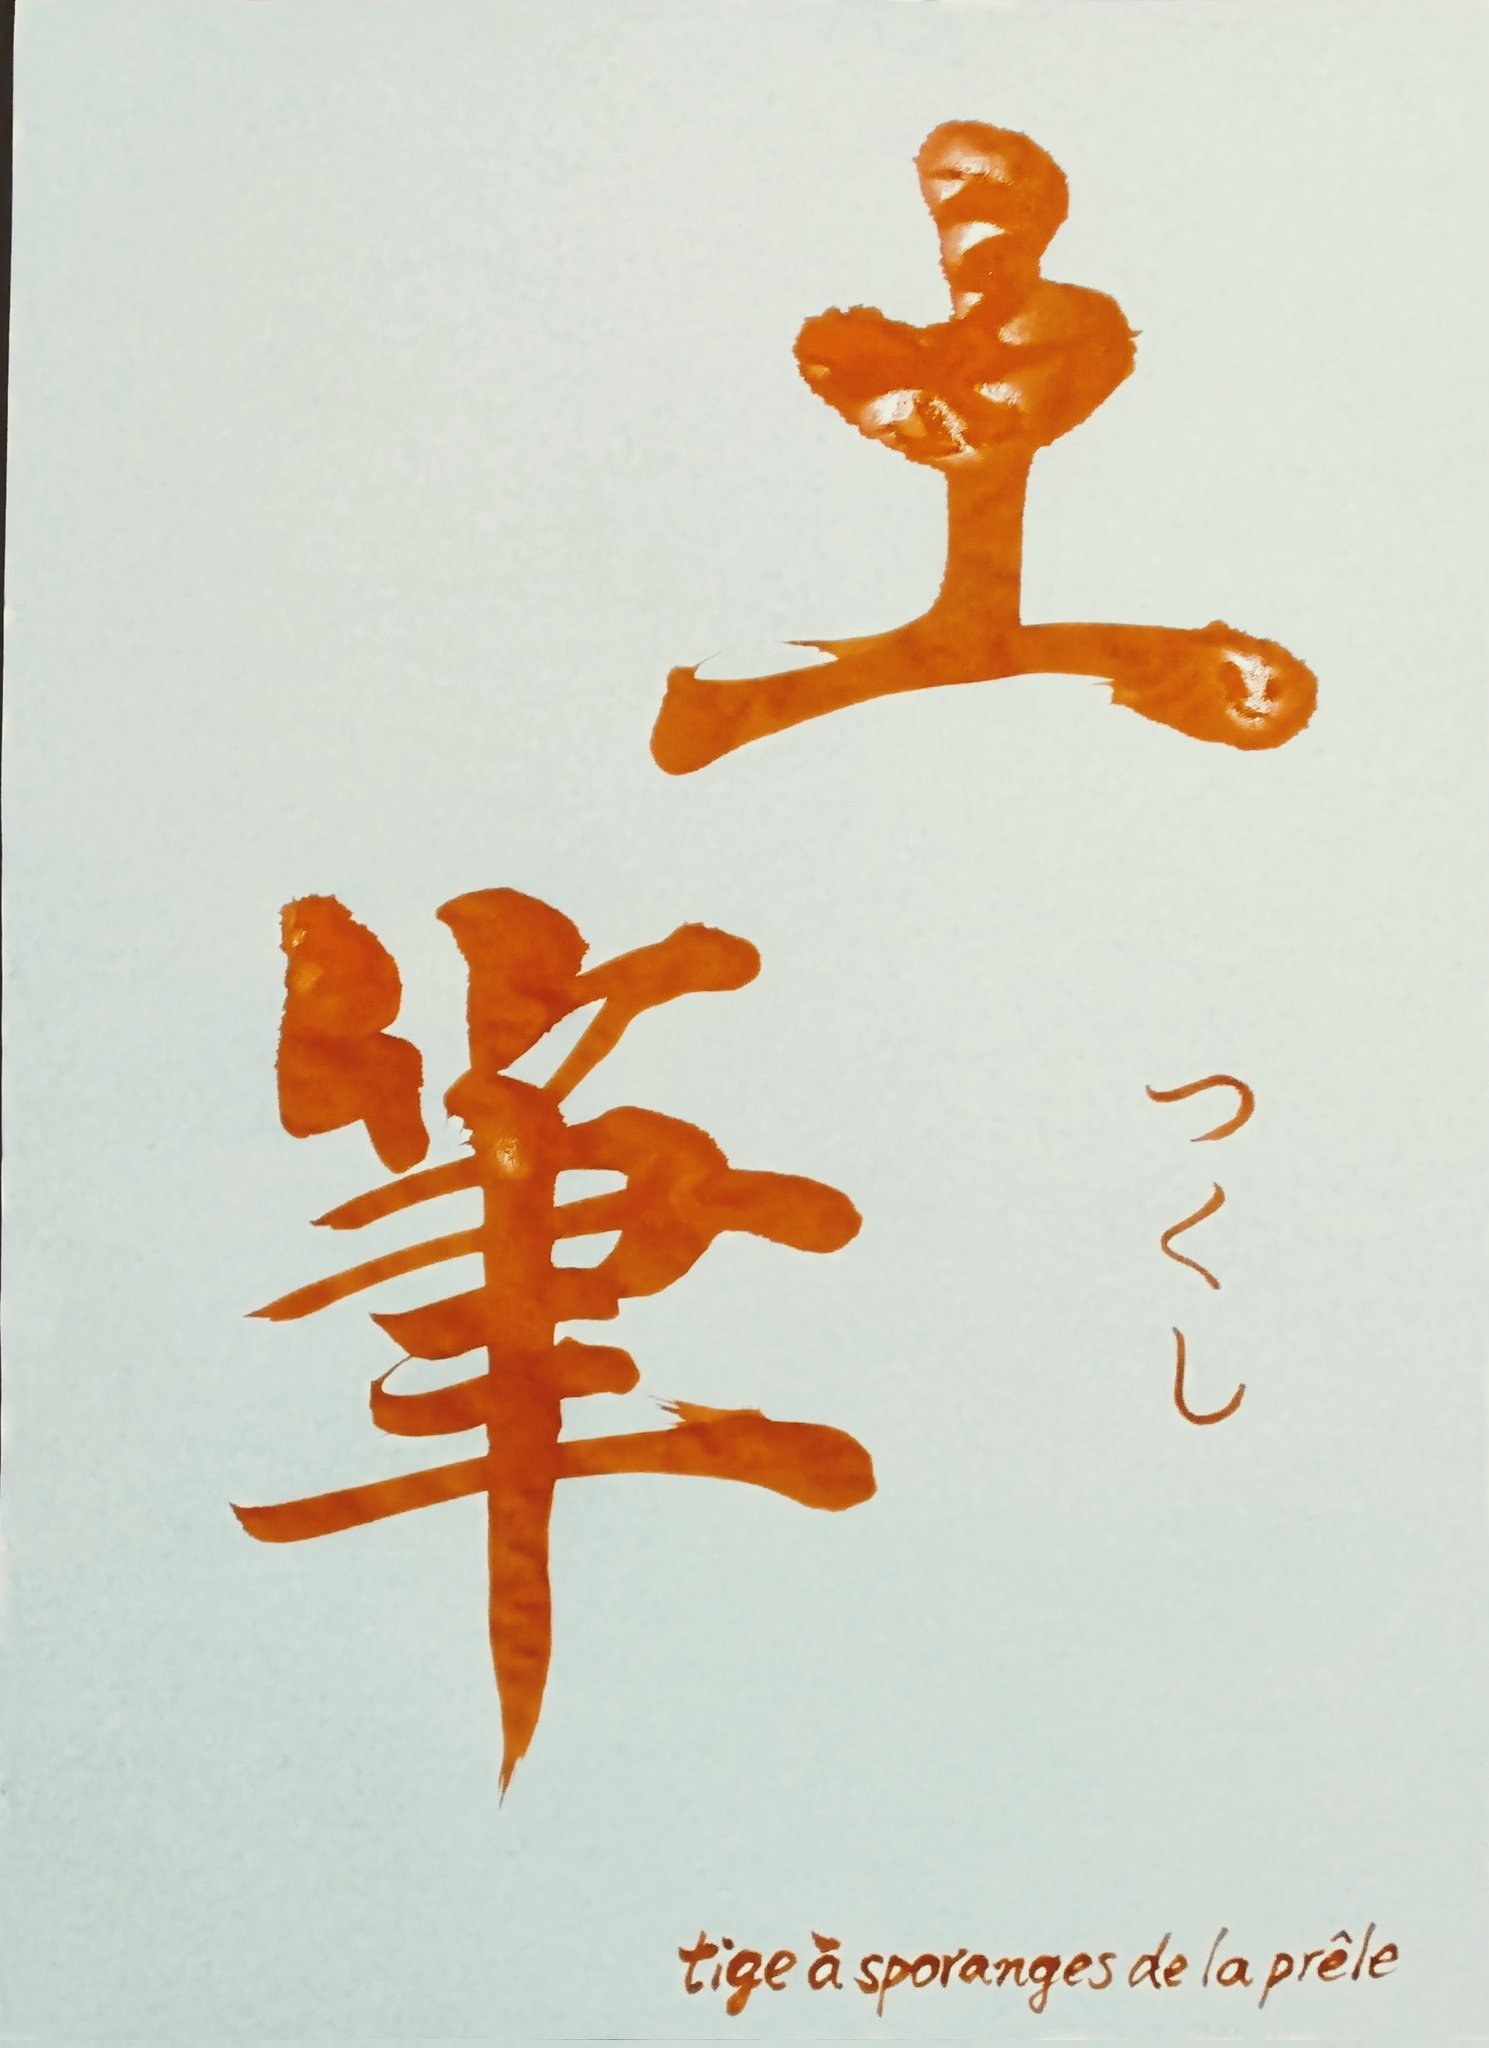 土筆
つくし
tige à sporanges de la prêle